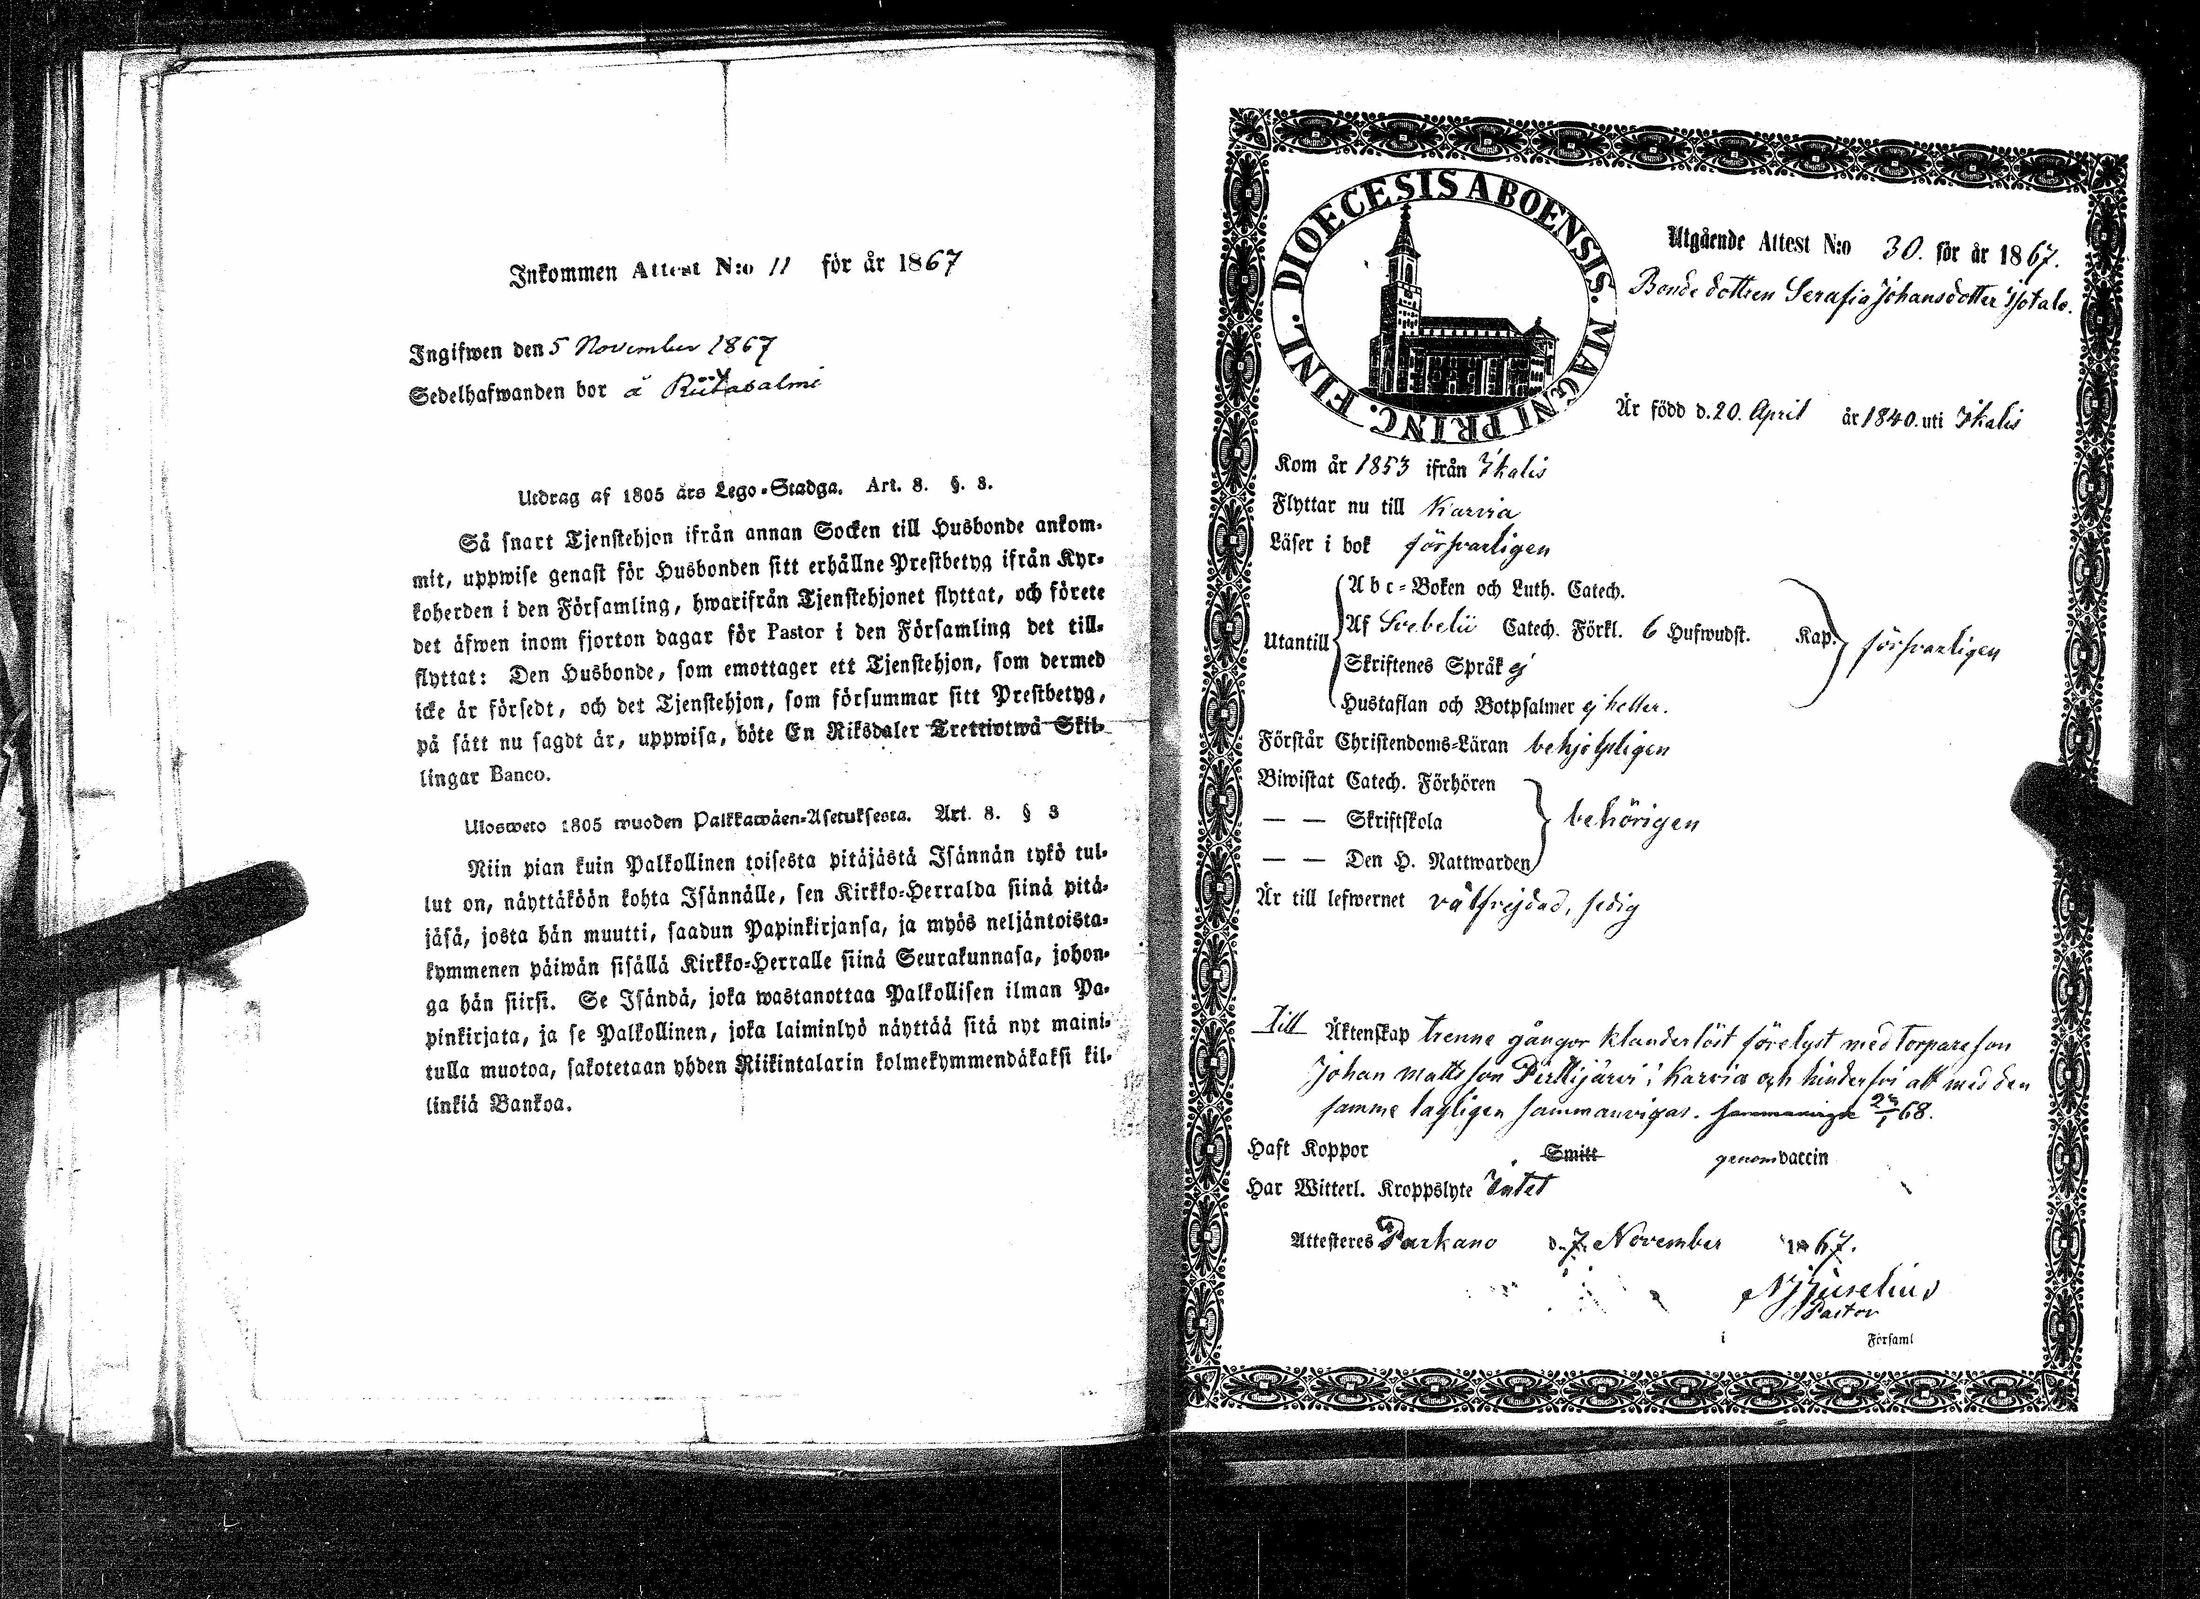 Inkommen Attest N:o 11 för år 1867
Ingifwen den 5 November 1867
Sedelhafwanden bor å
Utdrag af 1805 års Lego-Stadga. Art. 8. §. 3.
Så snart Tjenstehjon ifrån annan Socken till Husbonde ankom-
mit, uppwise genast för Husbonden sitt erhållne Prestbetyg ifrån Kyr-
koherden i den Församling, hwarifrån Tjenstehjonet flyttat, och förete
det äfwen inom fjorton dagar för Pastor i den Församling det till-
flyttat: Den Husbonde, som emottager ett Tjenstehjon, som dermed
icke är försedt, och det Tjenstehjon, som försummar sitt Prestbetyg,
på sätt nu sagdt är, uppwisa, böte En Riksdaler Trettiotwå Skil-
lingar Banco.
Ulosweto 1805 wuoden Palkkawäen-Asetuksesta. Art. 8. § 3
Niin pian kuin Palkollinen toisesta pitäjästä Isännän tykö tul-
lut on, näyttäköön kohta Isännälle, sen Kirkko-Herralda siinä pitä-
jäsä, josta hän muutti, saadun Papinkirjansa, ja myös neljäntoista-
kymmenen päiwän sisällä Kirkko-Herralle siinä Seurakunnasa, johon-
ga hän siirsi. Se Isändä, joka wastanottaa Palkollisen ilman Pa-
pinkirjata, ja se Palkollinen, joka laiminlyö näyttää sitä nyt maini-
tulla muotoa, sakotetaan yhden Riikintalarin kolmekymmendäkaksi kil-
linkiä Bankoa.
DIOECESIS ABOENSIS. MAGNI PRINC. FINL.
Utgående Attest N:o 30. för år 1867.
Bondedottren Serafia Johansdotter
Är född d. 20. April år 1840. uti Ikalis
Kom år 1853 ifrån Ikalis
Flyttar nu till Karvia
Läser i bok försvarligen
Abc-Boken och Luth. Catech.
Utantill Af Svebelii Catech. Förkl. 6 Hufwudst. Kap. försvarligen
Skriftenes Språk ej
Hustaflan och Botpsalmer ej heller.
Förstår Christendoms-Läran behjelpligen
Biwistat Catech. Förhören
— — Skriftskola behörigen
— — Den H. Nattwarden
Är till lefwernet välfrejdad, sedig
Till Äktenskap trenne gångor klanderlöst förelyst med torparesonen
Johan Mattsson Perttijärvi i Karvia och hinderfri att med den
samme lagligen sammanvigas. 68.
Haft Koppor Smitt genom vaccin
Har Witterl. Kroppslyte Intet
Attesteres Parkano d. 7. November 1867.
Pastor
i Församl